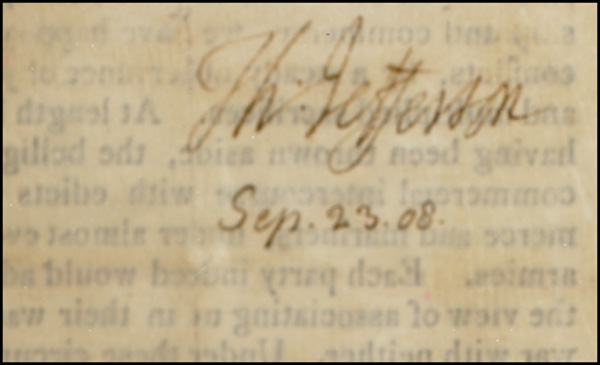 and commerce, we have
Th: Jefferson
conflicts, in a steady observance of
and sacrifices. At length
having been thrown aside, the bellig
commercial intercourse with edicts
Sep. 23. 08.
merce and mariners, under almost ev
armies. Each party indeed would ad
the view of associating us in their wa
war with neither. Under these circum